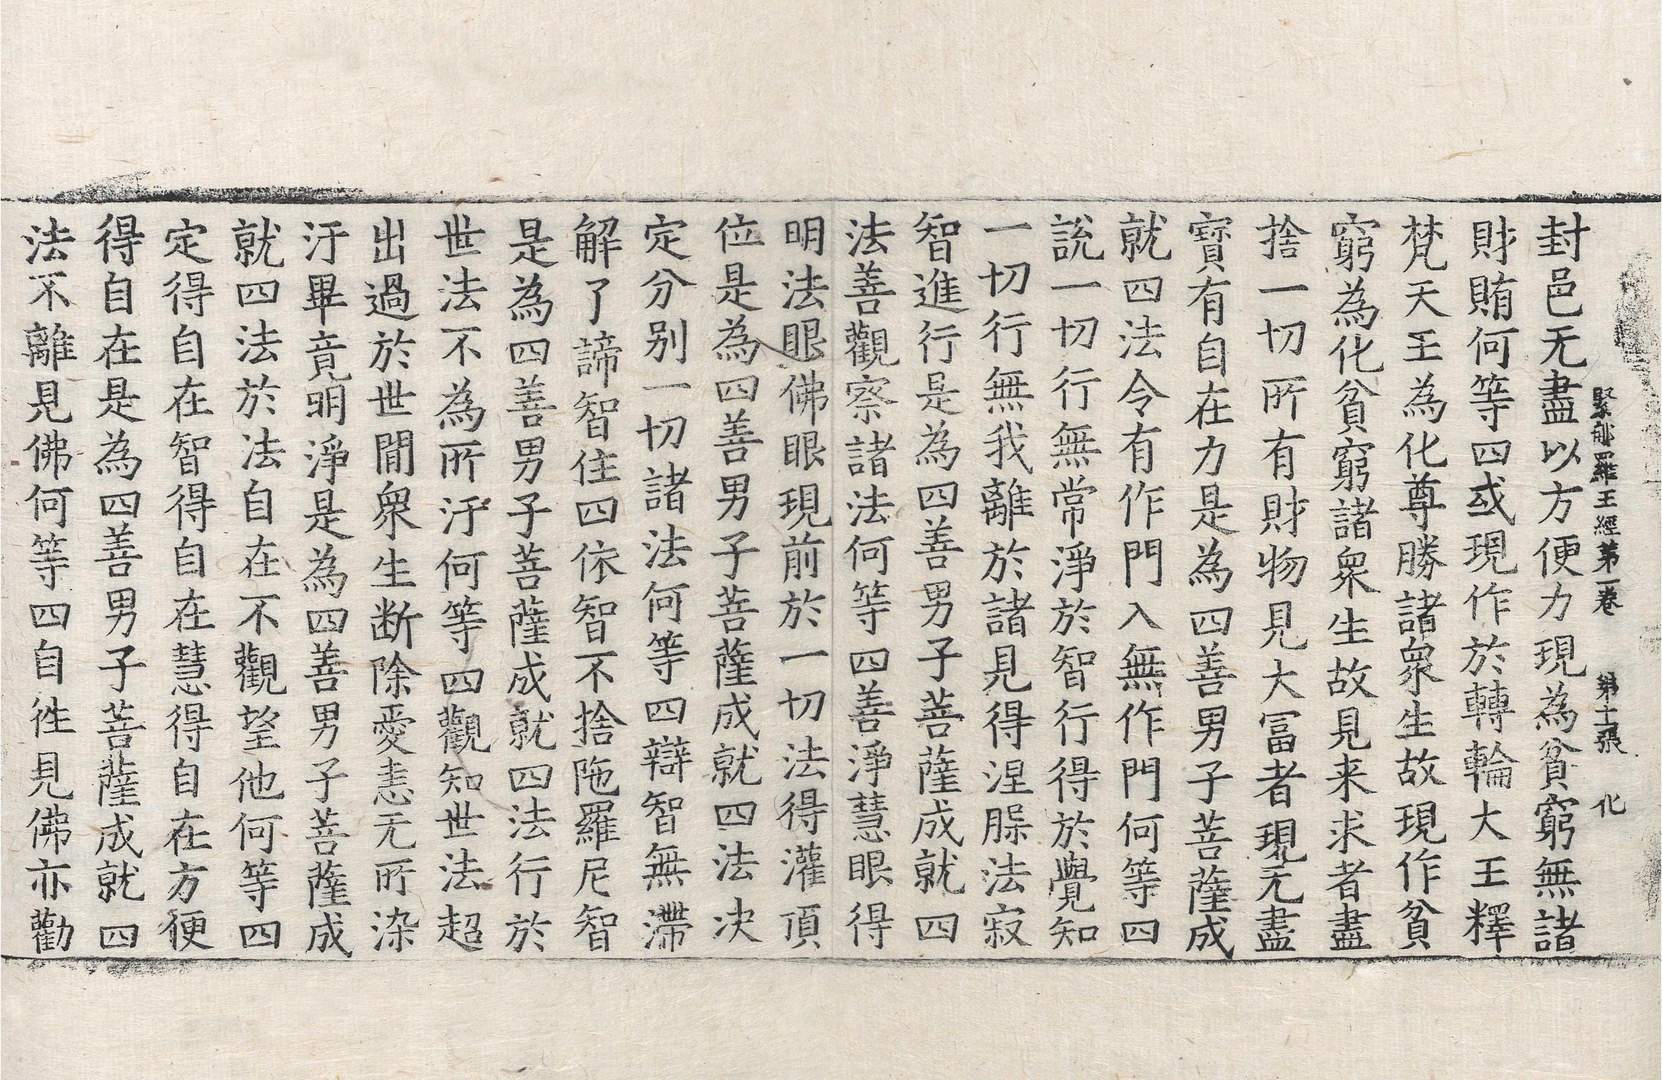 緊那羅王經第二卷 第十張 化
封邑无盡以方便力現為貧窮無諸
財賄何等四或現作於轉輪大王釋
梵天王為化尊勝諸衆生故現作貧
窮為化貧窮諸衆生故見来求者盡
捨一切所有財物見大冨者現无盡
寶有自在力是為四善男子菩薩成
就四法令有作門入無作門何等四
說一切行無常淨於智行得於覺知
一切行無我離於諸見得涅槃法寂
智進行是為四善男子菩薩成就四
法善觀察諸法何等四善淨慧眼得
明法眼佛眼現前於一切法得灌頂
位是為四善男子菩薩成就四法决
定分別一切諸法何等四辯智無滯
解了諦智住四依智不捨陁羅尼智
是為四善男子菩薩成就四法行於
世法不為所汙何等四觀知世法超
出過於世間衆生断除愛恚无所染
汙畢竟明淨是為四善男子菩薩成
就四法於法自在不觀望他何等四
定得自在智得自在慧得自在方便
得自在是為四善男子菩薩成就四
法不離見佛何等四自徃見佛亦勸